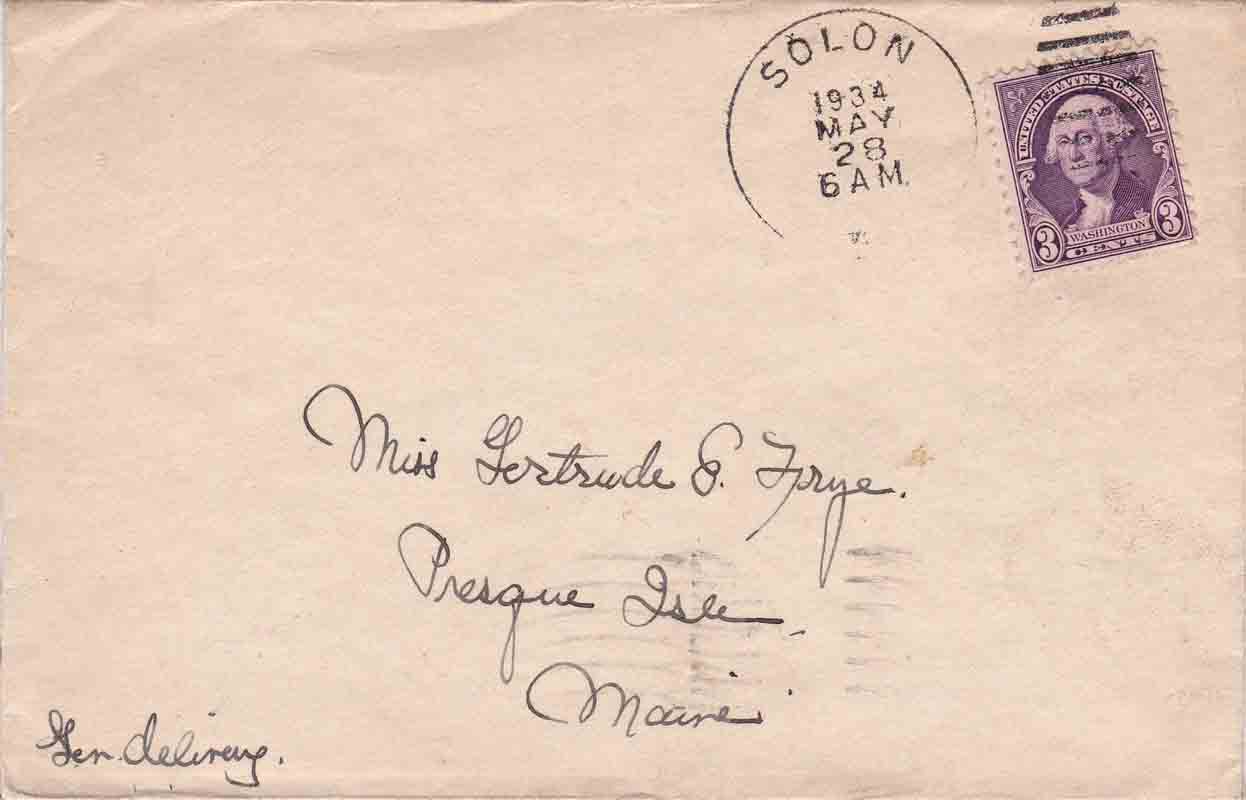 SOLON
1934
MAY
28
6 AM.
UNITED STATES POSTAGE
3 WASHINGTON 3
CENTS
Miss Gertrude E. Frye.
Presque Isle,
Maine
Gen. delivery.